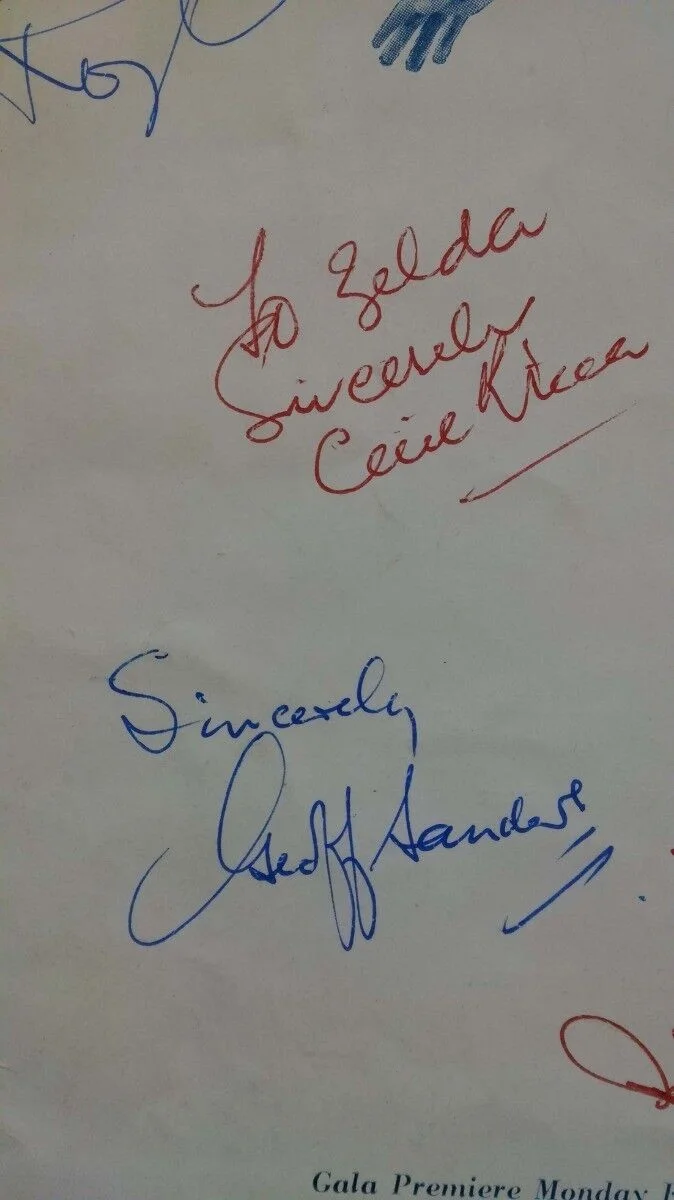 To Zelda
Sincerely
Cecile
Sincerely
Geoff Sanders
Gala Premiere Monday